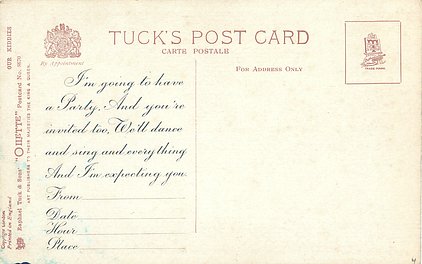 TUCK'S POST CARD
CARTE POSTALE
By Appointment
FOR ADDRESS ONLY
TRADE MARK
I'm going to have
a Party, And you're
invited too, We'll dance
and sing and everything
And I'm expecting you.
From
Date
Hour
Place
OUR KIDDIES
Raphael Tuck & Sons' "OILETTE" Postcard No. 9570
ART PUBLISHERS TO THEIR MAJESTIES THE KING & QUEEN.
Copyright London
Printed in England
4